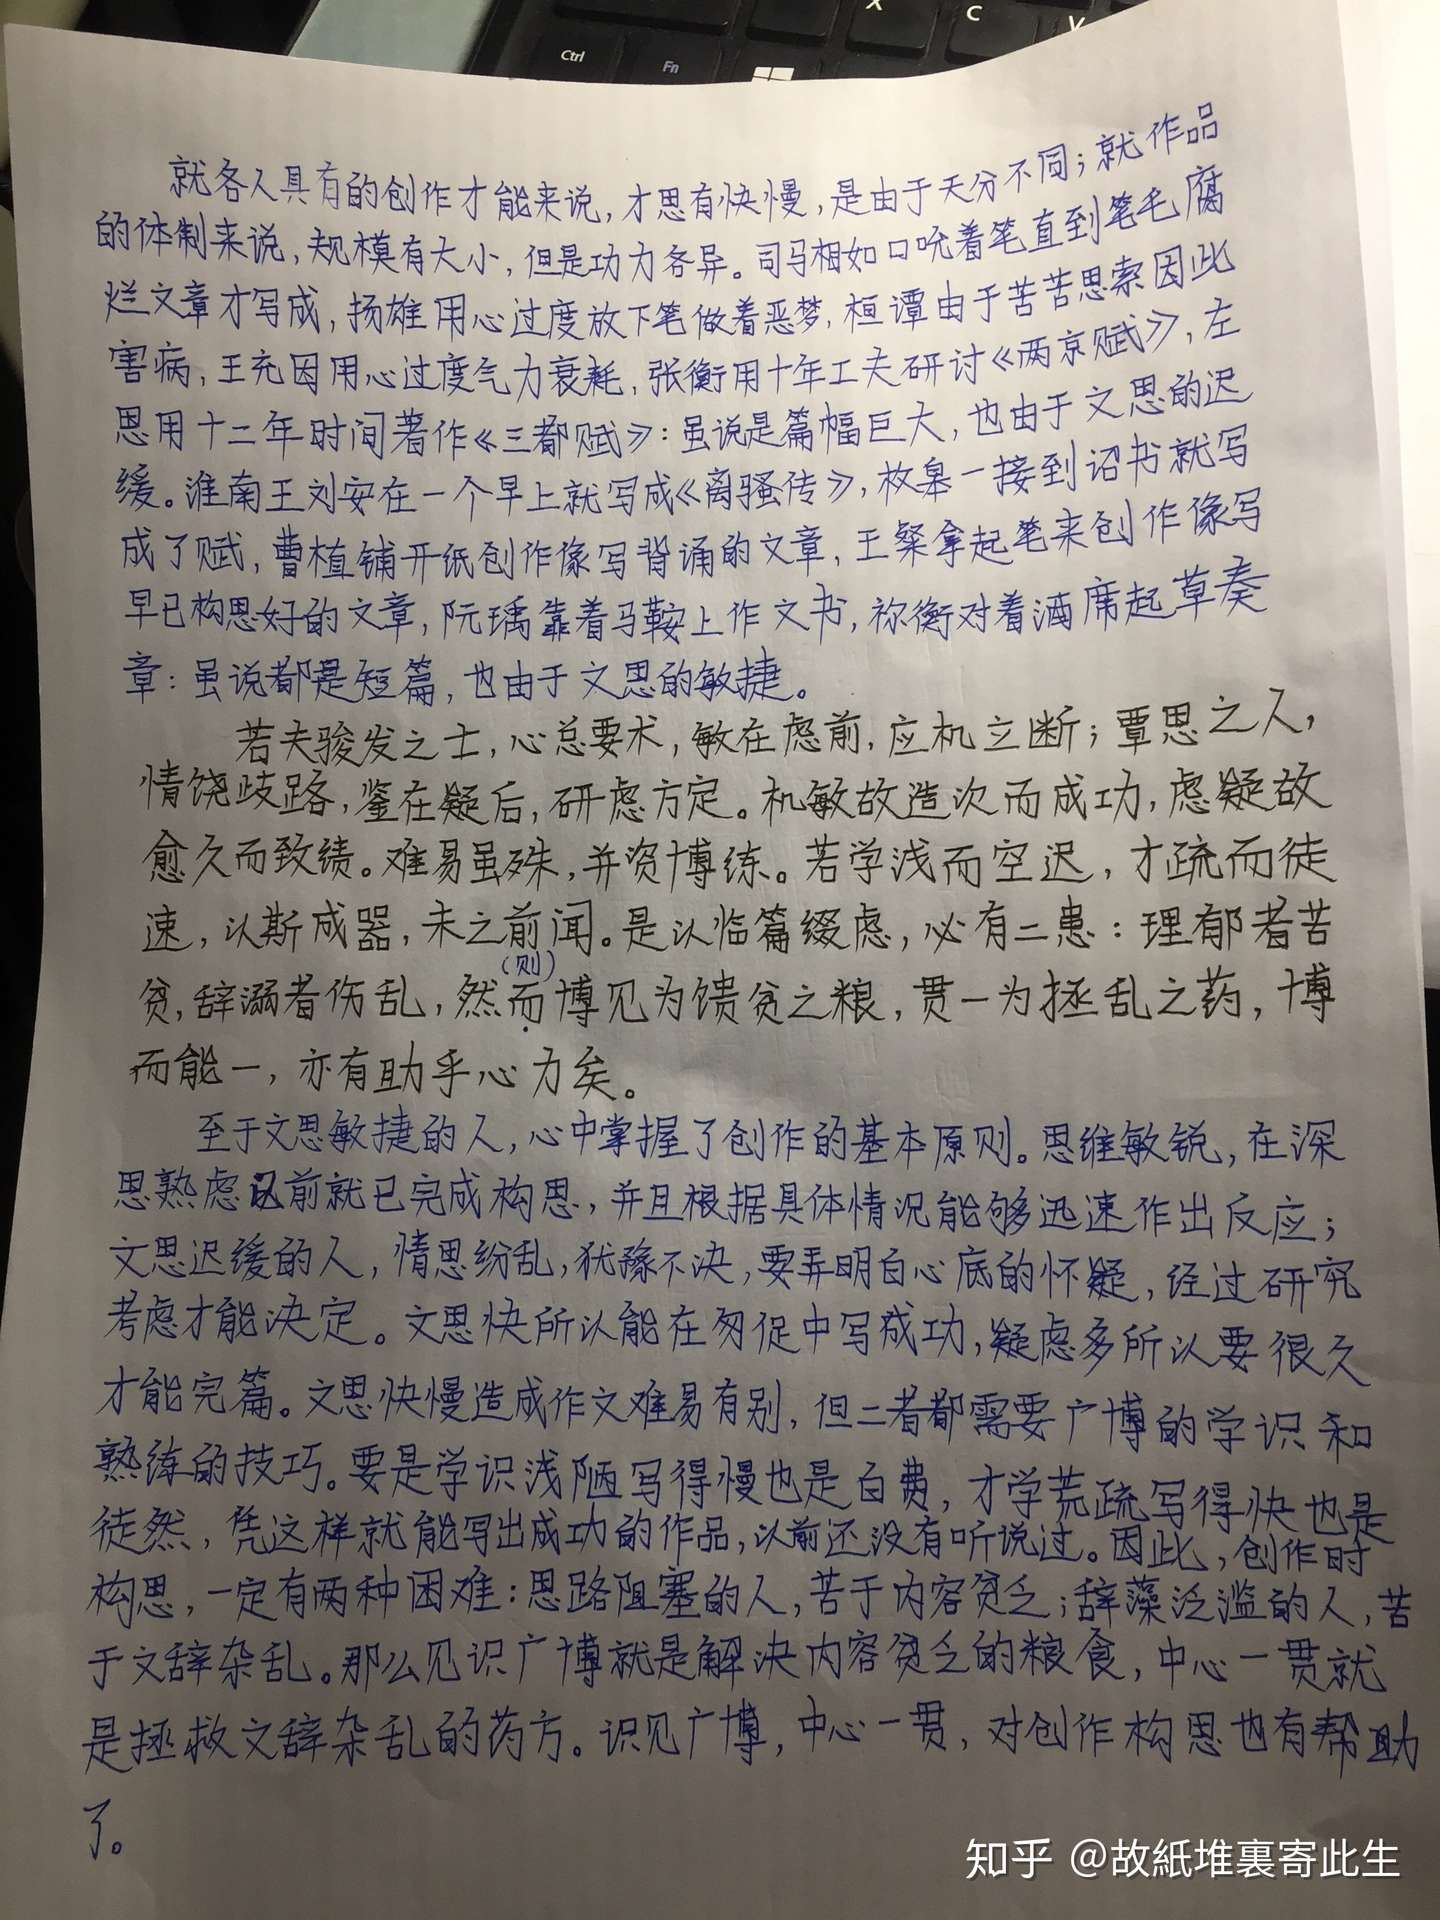 Ctrl
Fn
X
C
V
就各人具有的创作才能来说，才思有快慢，是由于天分不同；就作品
的体制来说，规模有大小，但是功力各异。司马相如口吮着笔直到笔毛腐
烂文章才写成，扬雄用心过度放下笔做着恶梦，桓谭由于苦苦思索因此
害病，王充因用心过度气力衰耗，张衡用十年工夫研讨《两京赋》，左
思用十二年时间著作《三都赋》：虽说是篇幅巨大，也由于文思的迟
缓。淮南王刘安在一个早上就写成《离骚传》，枚皋一接到诏书就写
成了赋，曹植铺开纸创作像写背诵的文章，王粲拿起笔来创作像写
早已构思好的文章，阮瑀靠着马鞍上作文书，祢衡对着酒席起草奏
章：虽说都是短篇，也由于文思的敏捷。
若夫骏发之士，心总要术，敏在虑前，应机立断；覃思之人，
情饶歧路，鉴在疑后，研虑方定。机敏故造次而成功，虑疑故
愈久而致绩。难易虽殊，并资博练。若学浅而空迟，才疏而徒
速，以斯成器，未之前闻。是以临篇缀虑，必有二患：理郁者苦
（则）
贫，辞溺者伤乱，然而博见为馈贫之粮，贯一为拯乱之药，博
而能一，亦有助乎心力矣。
至于文思敏捷的人，心中掌握了创作的基本原则。思维敏锐，在深
思熟虑以前就已完成构思，并且根据具体情况能够迅速作出反应；
文思迟缓的人，情思纷乱，犹豫不决，要弄明白心底的怀疑，经过研究
考虑才能决定。文思快所以能在匆促中写成功，疑虑多所以要很久
才能完篇。文思快慢造成作文难易有别，但二者都需要广博的学识和
熟练的技巧。要是学识浅陋写得慢也是白费，才学荒疏写得快也是
徒然，凭这样就能写出成功的作品，以前还没有听说过。因此，创作时
构思，一定有两种困难：思路阻塞的人，苦于内容贫乏；辞藻泛滥的人，苦
于文辞杂乱。那么见识广博就是解决内容贫乏的粮食，中心一贯就
是拯救文辞杂乱的药方。识见广博，中心一贯，对创作构思也有帮助
了。
知乎 @故紙堆裏寄此生